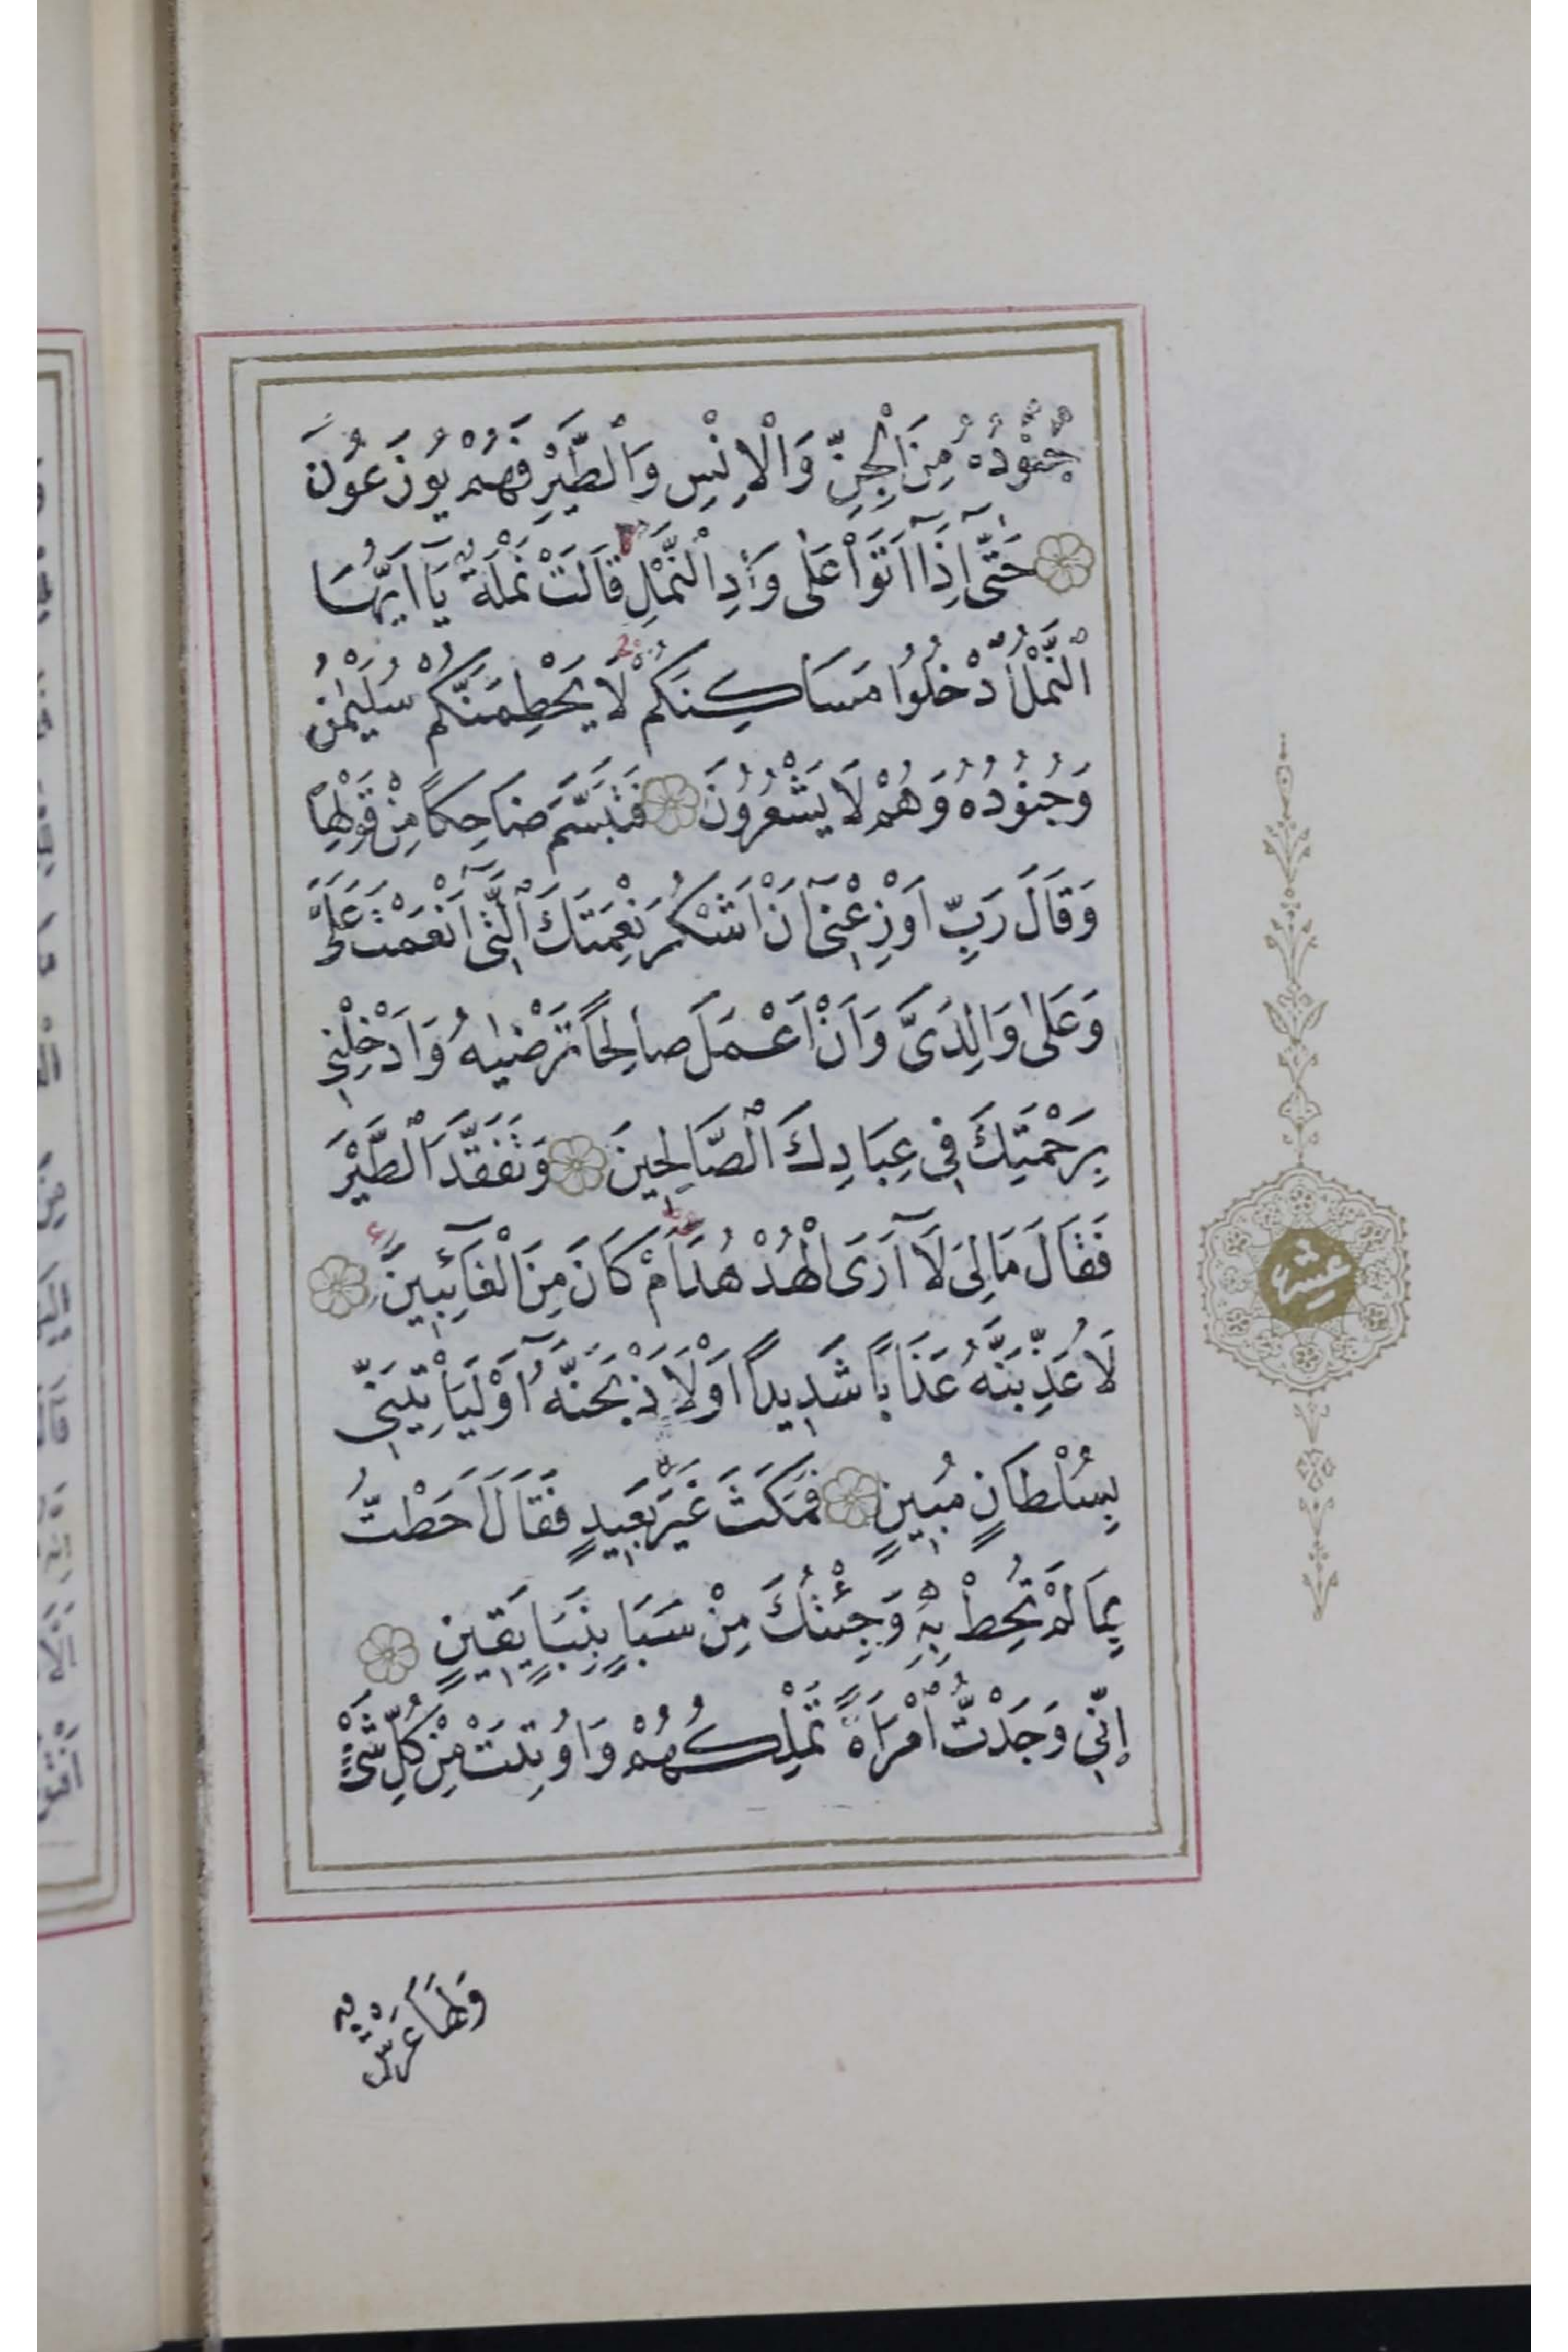 جُنُودُهُ مِنَ الْجِنِّ وَالْاِنْسِ وَالطَّيْرِ فَهُمْ يُوزَعُونَ
حَتَّىٓ اِذَٓا اَتَوْا عَلٰى وَادِ النَّمْلِ قَالَتْ نَمْلَةٌ يَٓا اَيُّهَا
النَّمْلُ ادْخُلُوا مَسَاكِنَكُمْ لَا يَحْطِمَنَّكُمْ سُلَيْمٰنُ
وَجُنُودُهُ وَهُمْ لَا يَشْعُرُونَ فَتَبَسَّمَ ضَاحِكًا مِنْ قَوْلِهَا
وَقَالَ رَبِّ اَوْزِعْنٖىٓ اَنْ اَشْكُرَ نِعْمَتَكَ الَّتٖىٓ اَنْعَمْتَ عَلَىَّ
وَعَلٰى وَالِدَىَّ وَاَنْ اَعْمَلَ صَالِحًا تَرْضٰيهُ وَاَدْخِلْنٖى
بِرَحْمَتِكَ فٖى عِبَادِكَ الصَّالِحٖينَ وَتَفَقَّدَ الطَّيْرَ
فَقَالَ مَا لِىَ لَٓا اَرَى الْهُدْهُدَ اَمْ كَانَ مِنَ الْغَٓائِبٖينَ
لَاُعَذِّبَنَّهُ عَذَابًا شَدٖيدًا اَوْ لَاَذْبَحَنَّهُٓ اَوْ لَيَاْتِيَنّٖى
بِسُلْطَانٍ مُبٖينٍ فَمَكَثَ غَيْرَ بَعٖيدٍ فَقَالَ اَحَطْتُ
بِمَا لَمْ تُحِطْ بِهٖ وَجِئْتُكَ مِنْ سَبَاٍ بِنَبَاٍ يَقٖينٍ
اِنّٖى وَجَدْتُ امْرَاَةً تَمْلِكُهُمْ وَاُوتِيَتْ مِنْ كُلِّ شَىْءٍ
وَلَهَا عَرْشٌ